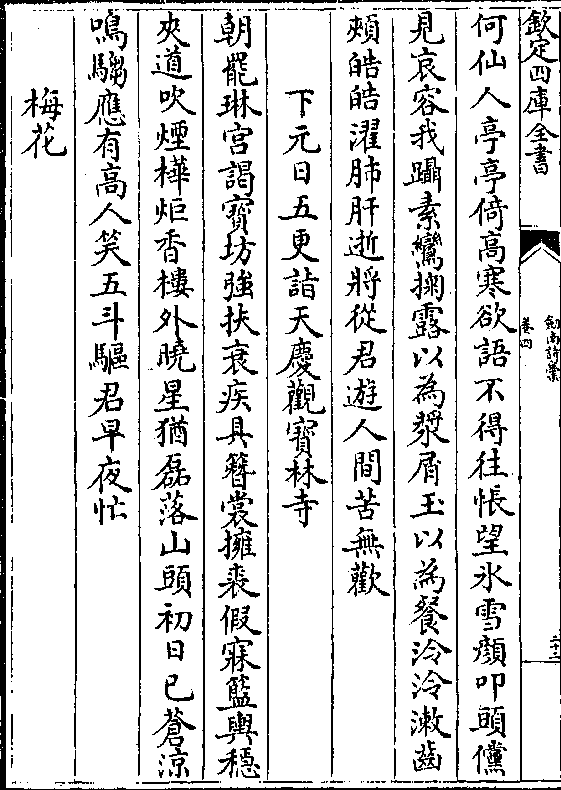 欽定四庫全書
劍南詩稾
卷四
何仙人亭亭倚高寒欲語不得往悵望氷雪顔叩頭儻
見哀容我躡素鸞掬露以為漿屑玉以為餐泠泠潄齒
頰皓皓濯肺肝逝將從君遊人間苦無歡
下元日五更詣天慶觀寶林寺
朝罷琳宮謁寶坊強扶衰疾具簪裳擁裘假寐籃輿穩
夾道吹煙樺炬香樓外曉星猶磊落山頭初日已蒼涼
鳴騶應有高人笑五斗驅君早夜忙
梅花